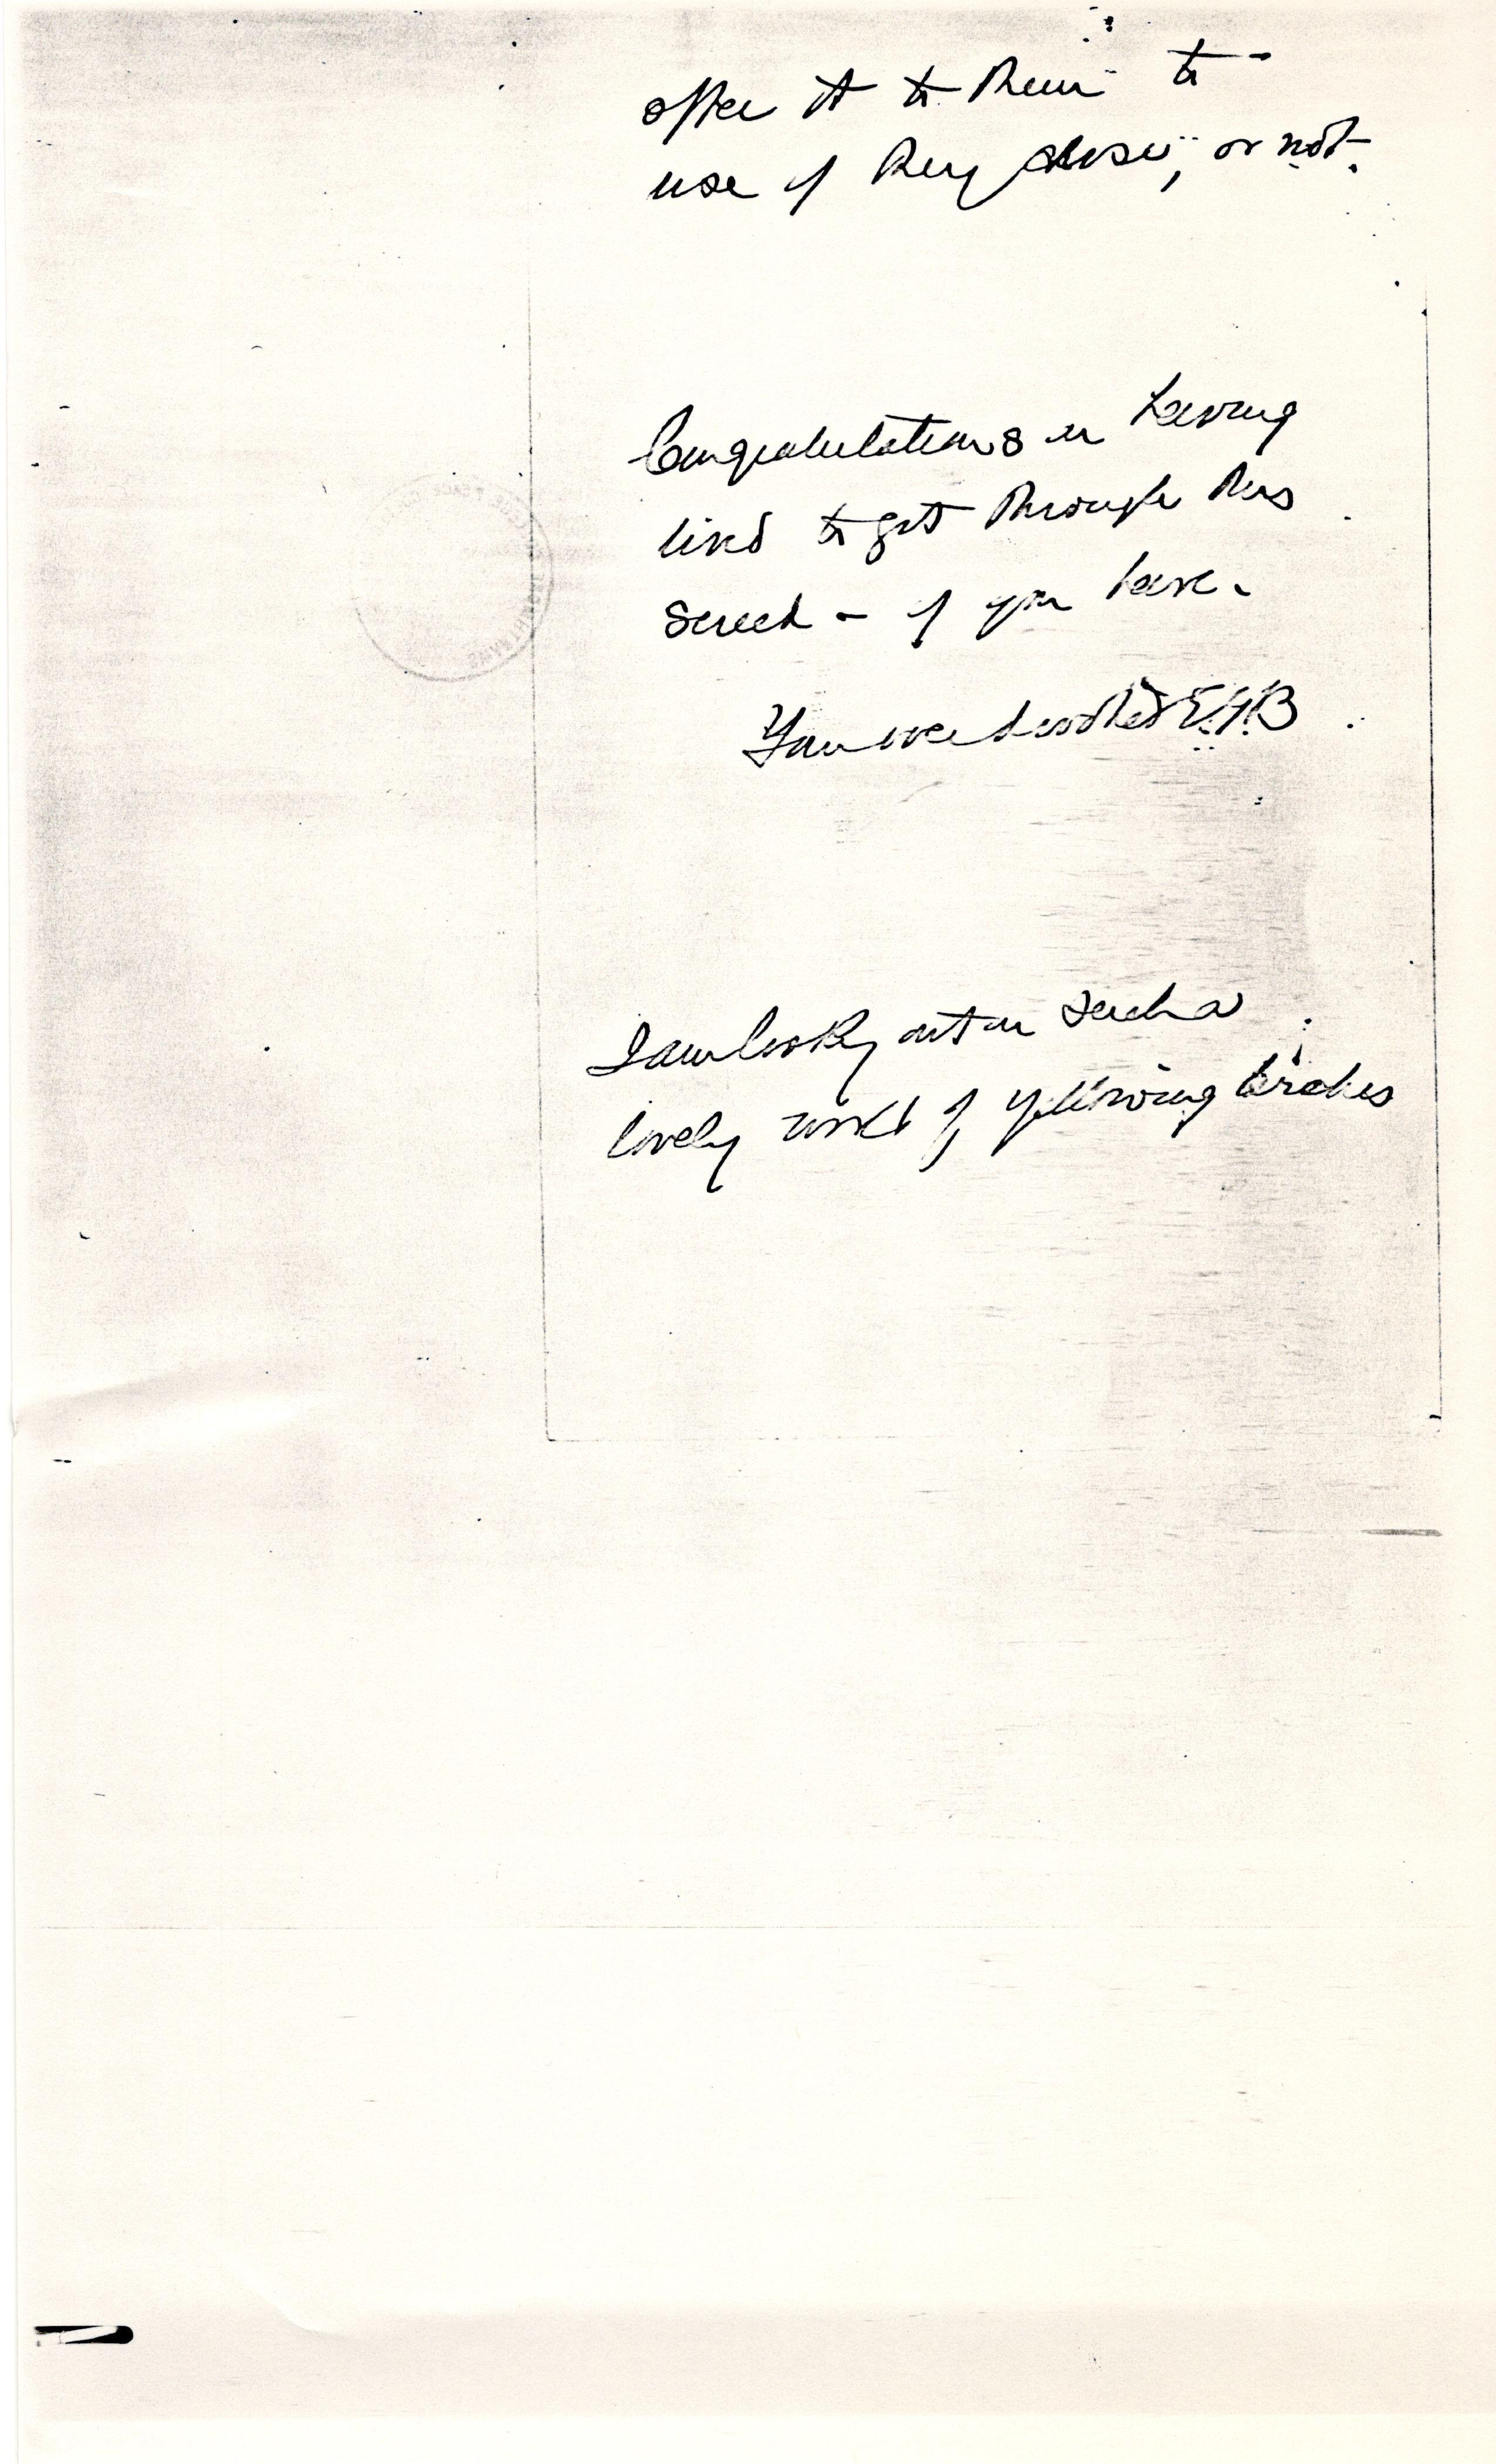 offer it to them to
use if they choose, or not.
Congratulations on having
lived to get through this
screed – if you have.
E.G.B
I am looking out on such a
lovely world of yellowing birches